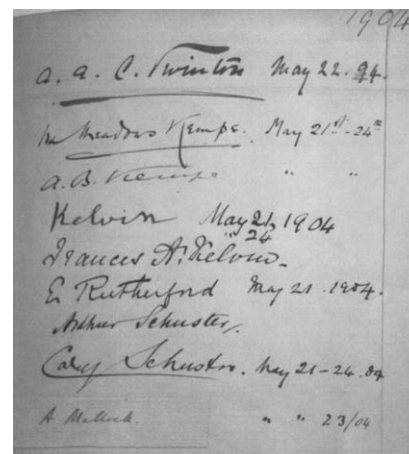 1904
A. A. C. Swinton May 22. 94.
Meadows Kempe. May 21st - 24th
A. B. Kempe " "
Kelvin May 21, 1904
" 24
Frances A. Kelvin
E Rutherford May 21. 1904.
Arthur Schuster
Cary Schuster. May 21 - 24. 04
A Mallock. " " 23/04